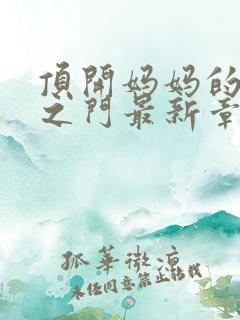 頂開妈妈的
之门最新章
孤華微涼
未经同意禁止转载